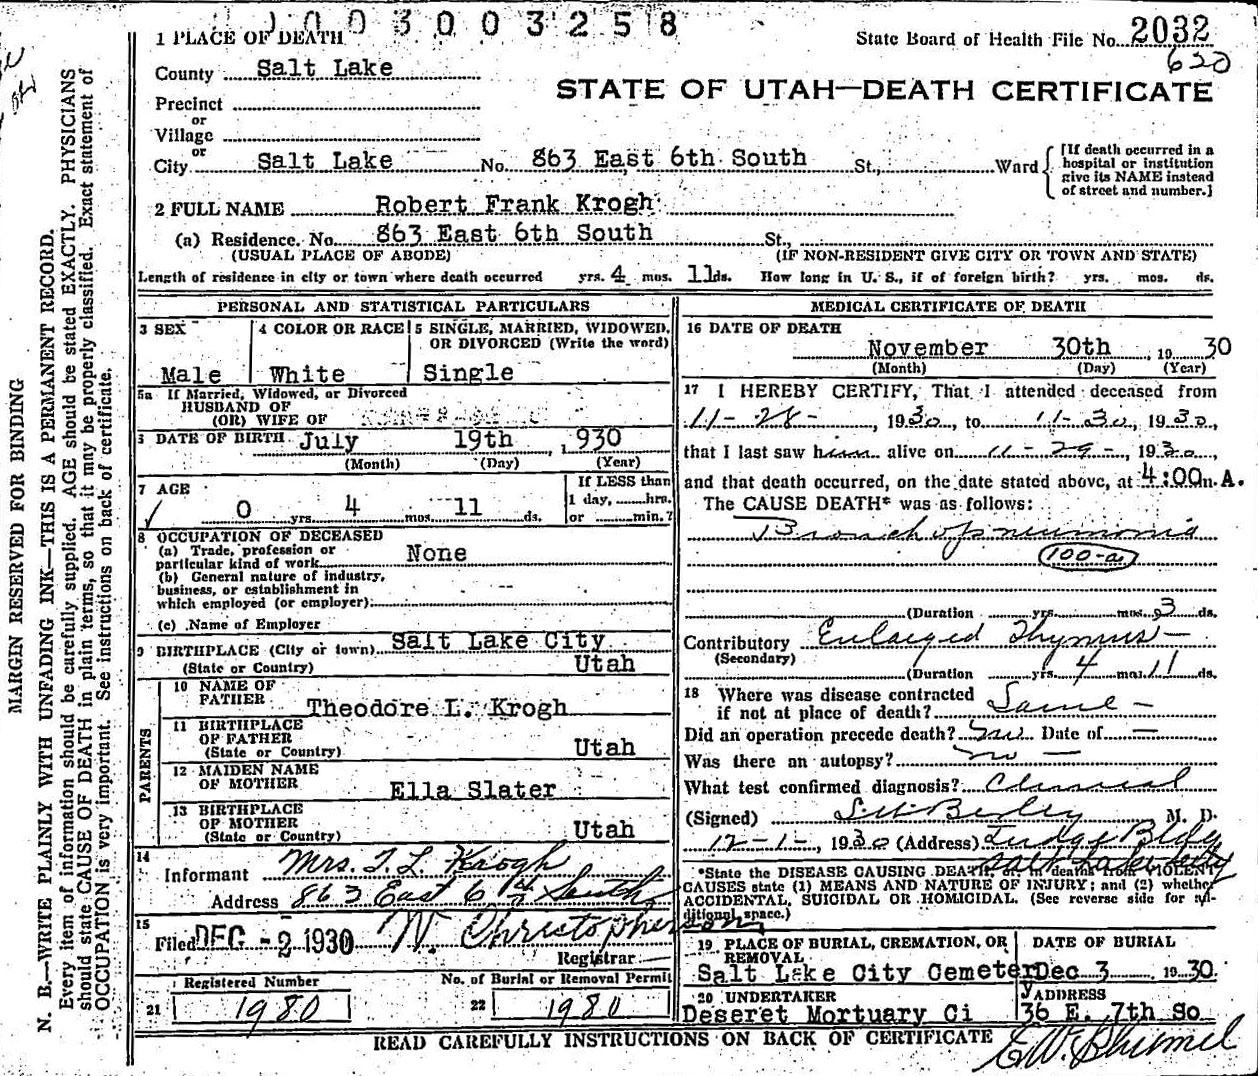 1003003258
1 PLACE OF DEATH
State Board of Health File No. 2032
620
County Salt Lake
STATE OF UTAH—DEATH CERTIFICATE
Precinct
or
Village
or
City Salt Lake No. 863 East 6th South St., Ward
[If death occurred in a
hospital or institution
give its NAME instead
of street and number.]
2 FULL NAME Robert Frank Krogh
(a) Residence. No. 863 East 6th South St.,
(USUAL PLACE OF ABODE) (IF NON-RESIDENT GIVE CITY OR TOWN AND STATE)
Length of residence in city or town where death occurred yrs. 4 mos. 11 ds. How long in U. S., if of foreign birth? yrs. mos. ds.
PERSONAL AND STATISTICAL PARTICULARS
3 SEX
Male
4 COLOR OR RACE
White
5 SINGLE, MARRIED, WIDOWED,
OR DIVORCED (Write the word)
Single
5a If Married, Widowed, or Divorced
HUSBAND OF
(OR) WIFE OF
6 DATE OF BIRTH July 19th, 1930
(Month) (Day) (Year)
7 AGE
0 yrs. 4 mos. 11 ds.
If LESS than
1 day, hrs.
or min.?
8 OCCUPATION OF DECEASED
(a) Trade, profession or
particular kind of work None
(b) General nature of industry,
business, or establishment in
which employed (or employer)
(c) Name of Employer
9 BIRTHPLACE (City or town) Salt Lake City
(State or Country) Utah
PARENTS
10 NAME OF
FATHER Theodore L. Krogh
11 BIRTHPLACE
OF FATHER
(State or Country) Utah
12 MAIDEN NAME
OF MOTHER Ella Slater
13 BIRTHPLACE
OF MOTHER
(State or Country) Utah
14
Informant Mrs. T. L. Krogh
Address 863 East 6th South
15
Filed DEC -2 1930 N. Christopherson
Registrar
Registered Number
21 1980
No. of Burial or Removal Permit
22 1980
MEDICAL CERTIFICATE OF DEATH
16 DATE OF DEATH
November 30th, 19 30
(Month) (Day) (Year)
17 I HEREBY CERTIFY, That I attended deceased from
11-28-, 1930, to 11-30, 1930,
that I last saw him alive on 11-29-, 1930,
and that death occurred, on the date stated above, at 4:00 m. A.
The CAUSE DEATH* was as follows:
Bronchopneumonia
100-a
(Duration yrs. mos. 3 ds.
Contributory Enlarged Thymus-
(Secondary)
(Duration yrs. 4 mos. 11 ds.
18 Where was disease contracted
if not at place of death? Same-
Did an operation precede death? no Date of —
Was there an autopsy? no —
What test confirmed diagnosis? Clinical
(Signed) M. D.
12-1-, 1930 (Address) Judge Bldg
Salt Lake City
*State the DISEASE CAUSING DEATH, or, in deaths from VIOLENT
CAUSES state (1) MEANS AND NATURE OF INJURY; and (2) whether
ACCIDENTAL, SUICIDAL OR HOMICIDAL. (See reverse side for ad-
ditional space.)
19 PLACE OF BURIAL, CREMATION, OR
REMOVAL
Salt Lake City Cemetery
DATE OF BURIAL
Dec 3 19 30
20 UNDERTAKER
Deseret Mortuary Ci
ADDRESS
36 E. 7th So
READ CAREFULLY INSTRUCTIONS ON BACK OF CERTIFICATE
MARGIN RESERVED FOR BINDING
N. B.—WRITE PLAINLY WITH UNFADING INK—THIS IS A PERMANENT RECORD.
Every item of information should be carefully supplied. AGE should be stated EXACTLY. PHYSICIANS
should state CAUSE OF DEATH in plain terms, so that it may be properly classified. Exact statement of
OCCUPATION is very important. See instructions on back of certificate.